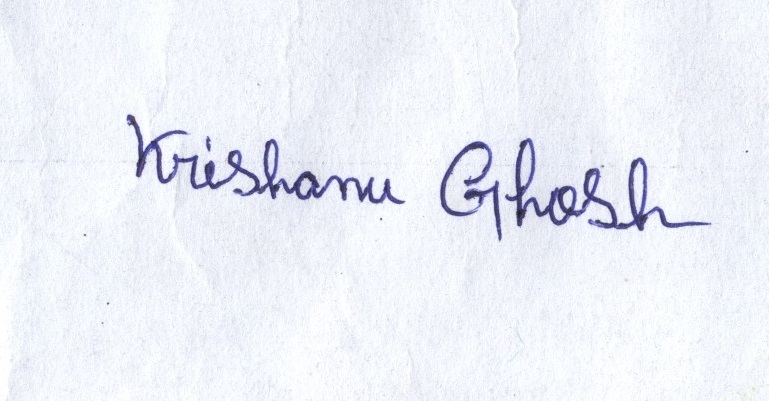 Krishanu Ghosh